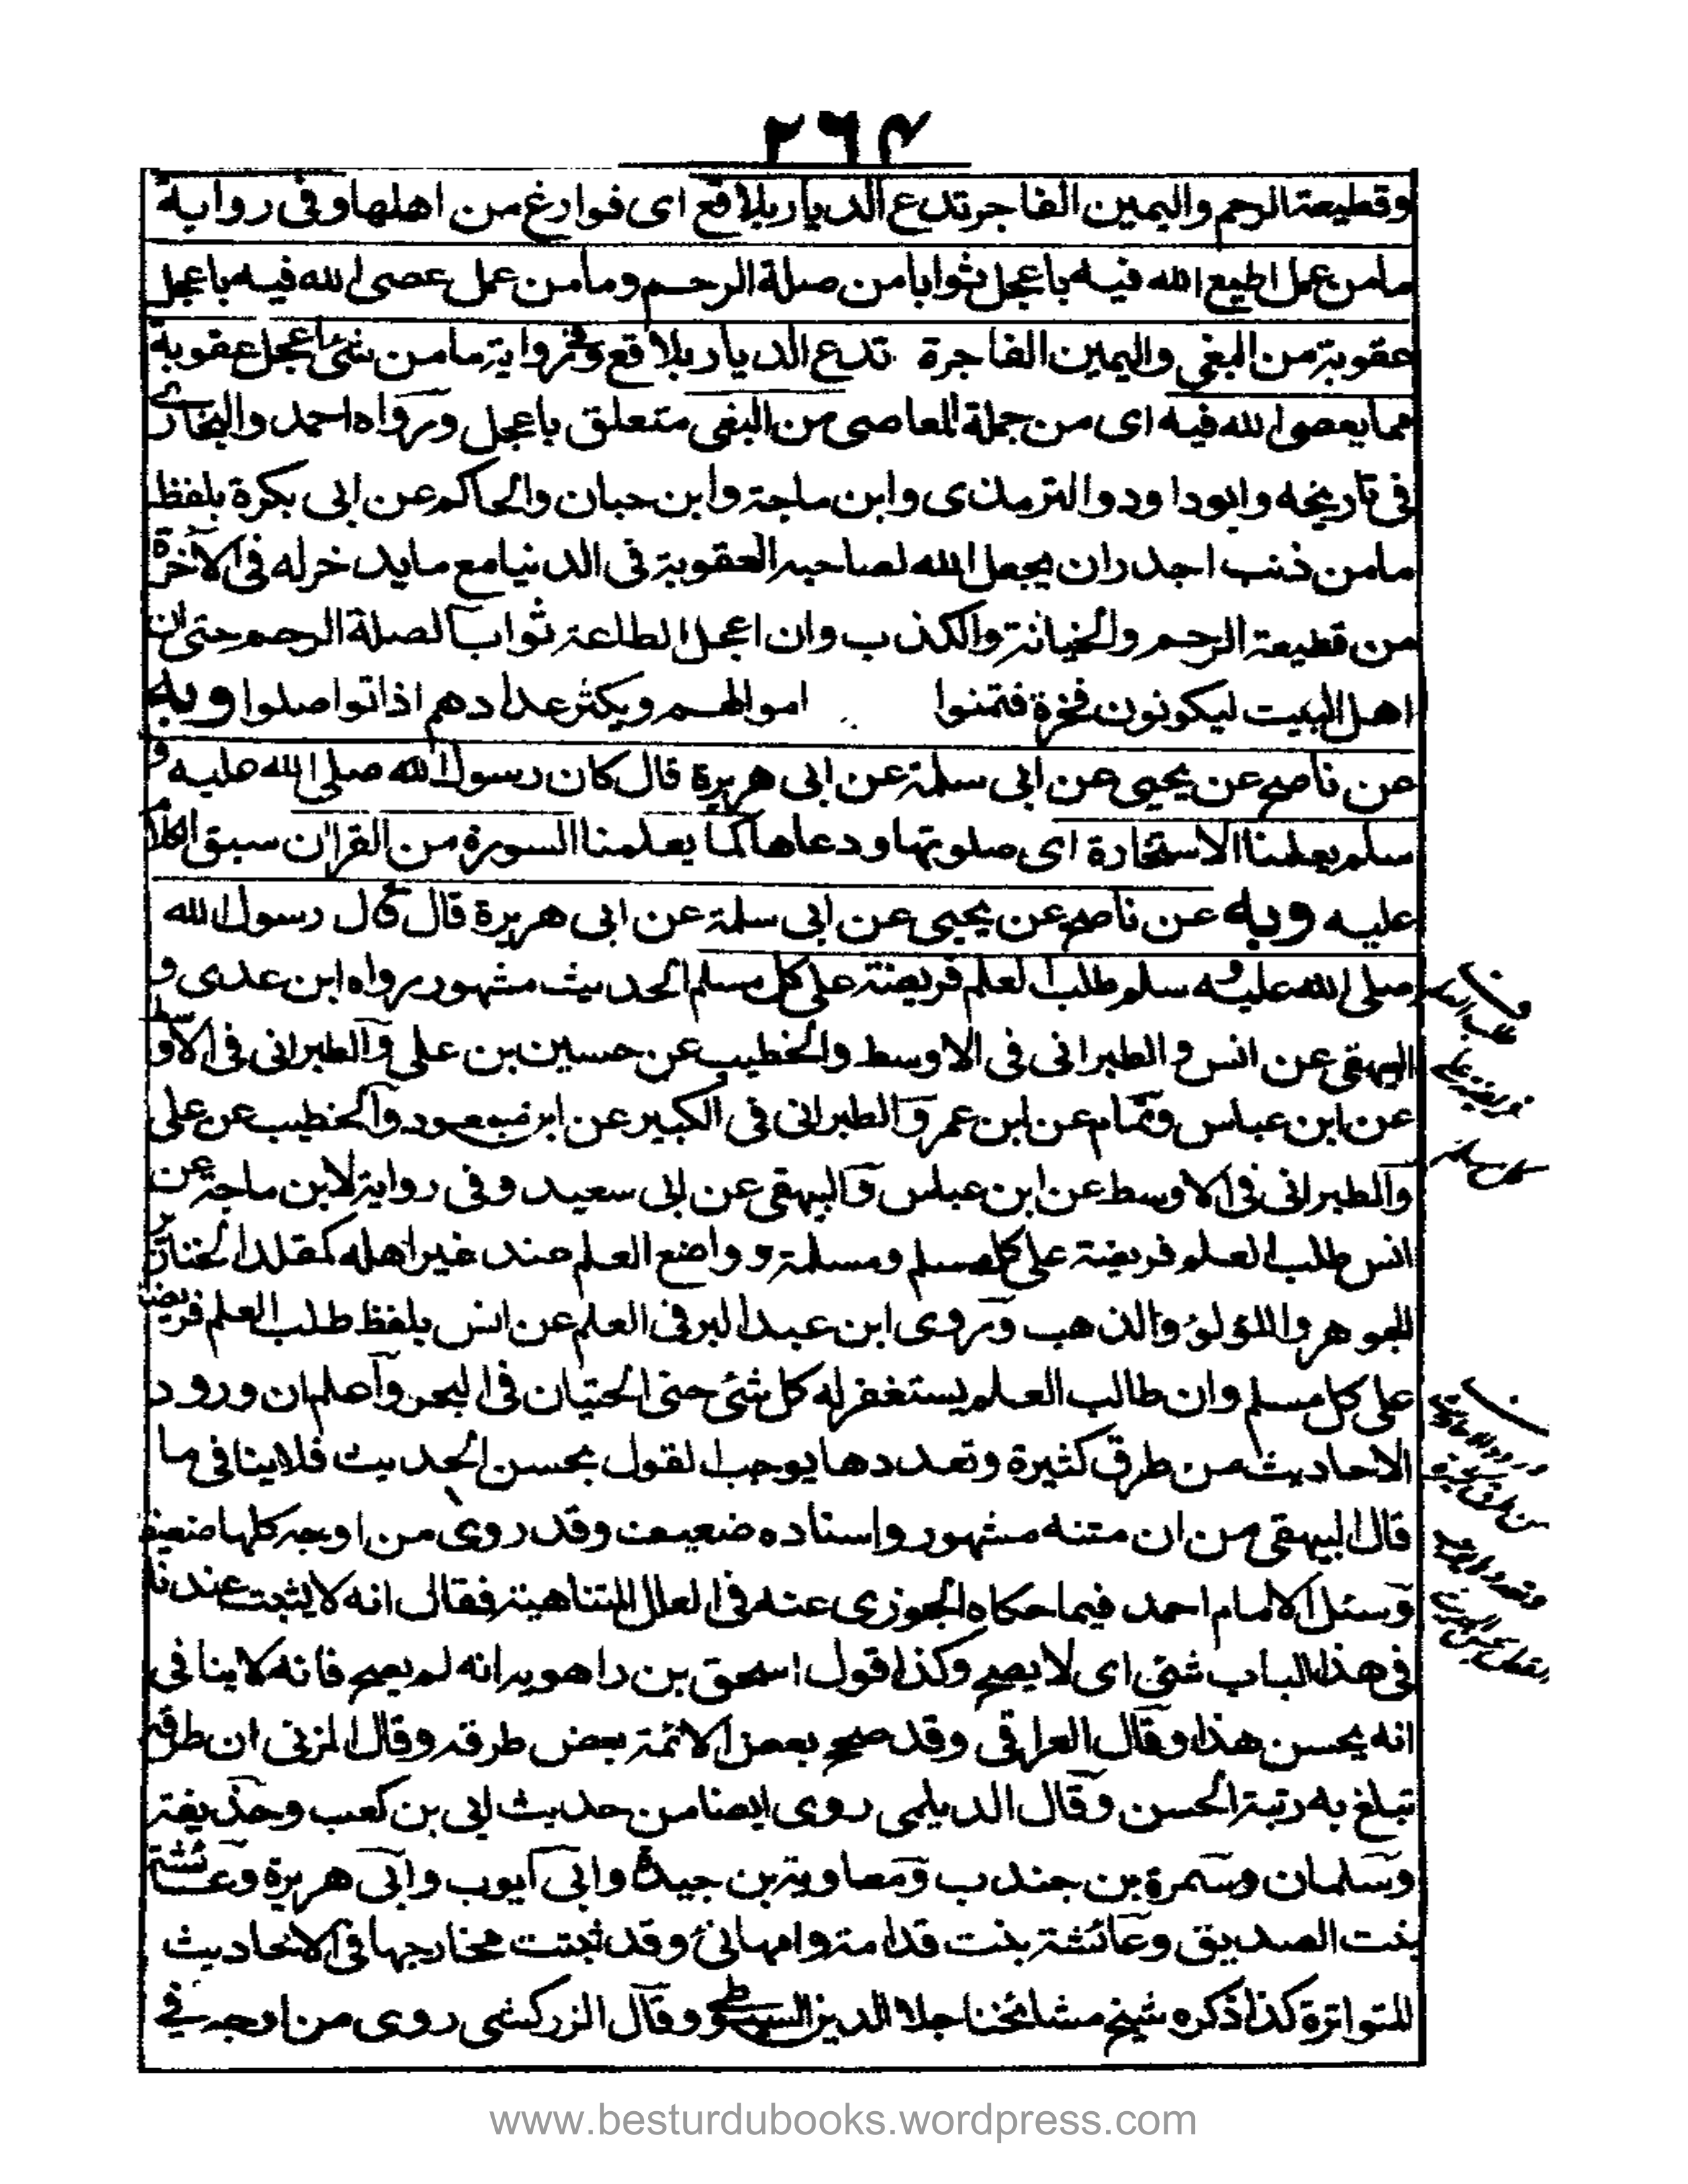 ٢٦٤
وقطيعة الرحم واليمين الفاجر تدع الديار بلاقع اى فوارغ من اهلها وفى رواية
ما من عمل اطيع الله فيه باعجل ثوابا من صلة الرحم وما من عمل عصى الله فيه باعجل
عقوبة من البغى واليمين الفاجرة تدع الديار بلاقع وفى رواية ما من شئ اعجل عقوبة
مما يعصى الله فيه اى من جملة المعاصى من البغى متعلق باعجل ورواه احمد والبخارى
فى تاريخه وابوداود والترمذى وابن ماجة وابن حبان والحاكم عن ابى بكرة بلفظ
ما من ذنب اجدر ان يعجل الله لصاحبه العقوبة فى الدنيا مع ما يدخر له فى الآخرة
من قطيعة الرحم والخيانة والكذب وان اعجل الطاعة ثوابا لصلة الرحم حتى ان
اهل البيت ليكونون فجرة فتمنوا اموالهم ويكثر عدادهم اذا تواصلوا وبه
عن ناصح عن يحيى عن ابى سلمة عن ابى هريرة قال كان رسول الله صلى الله عليه و
سلم يعلمنا الاستخارة اى صلوتها ودعاها كما يعلمنا السورة من القرآن سبق الكلام
عليه وبه عن ناصح عن يحيى عن ابى سلمة عن ابى هريرة قال قال رسول الله
صلى الله عليه و سلم طلب العلم فريضة على كل مسلم الحديث مشهور رواه ابن عدى و
البيهقى عن انس والطبرانى فى الاوسط والخطيب عن حسين بن على والطبرانى فى الاوسط
عن ابن عباس وتمام عن ابن عمر والطبرانى فى الكبير عن ابن مسعود والخطيب عن على
والطبرانى فى الاوسط عن ابن عباس والبيهقى عن ابى سعيد وفى رواية لابن ماجة عن
انس طلب العلم فريضة على كل مسلم ومسلمة وواضع العلم عند غير اهله كمقلد الخنازير
الجوهر واللؤلؤ والذهب وروى ابن عبد البر فى العلم عن انس بلفظ طلب العلم فريضة
على كل مسلم وان طالب العلم يستغفر له كل شئ حتى الحيتان فى البحر واعلم ان ورود
الاحاديث من طرق كثيرة وتعددها يوجب القول بحسن الحديث فلا ينافى ما
قال البيهقى من ان متنه مشهور واسناده ضعيف وقد روى من اوجه كلها ضعيف
وسئل الامام احمد فيما حكاه الجوزى عنه فى العلل المتناهية فقال انه لا يثبت عندنا
فى هذا الباب شئ اى لا يصح وكذا قول اسحق بن راهويه انه لم يصح فانه لا ينافى
انه يحسن هذا وقال العراقى وقد صحح بعض الائمة بعض طرقه وقال المزنى ان طرقه
تبلغ به رتبة الحسن وقال الديلمى روى ايضا من حديث ابى بن كعب وحذيفة
وسلمان وسمرة بن جندب ومعاوية بن جيدة وابى ايوب وابى هريرة وعائشة
بنت الصديق وعائشة بنت قدامة وام هانئ وقد ثبتت مخارجها فى الاحاديث
المتواترة كذا ذكره شيخ مشائخنا جلال الدين السيوطى وقال الزركشى روى من اوجه فى
www.besturdubooks.wordpress.com